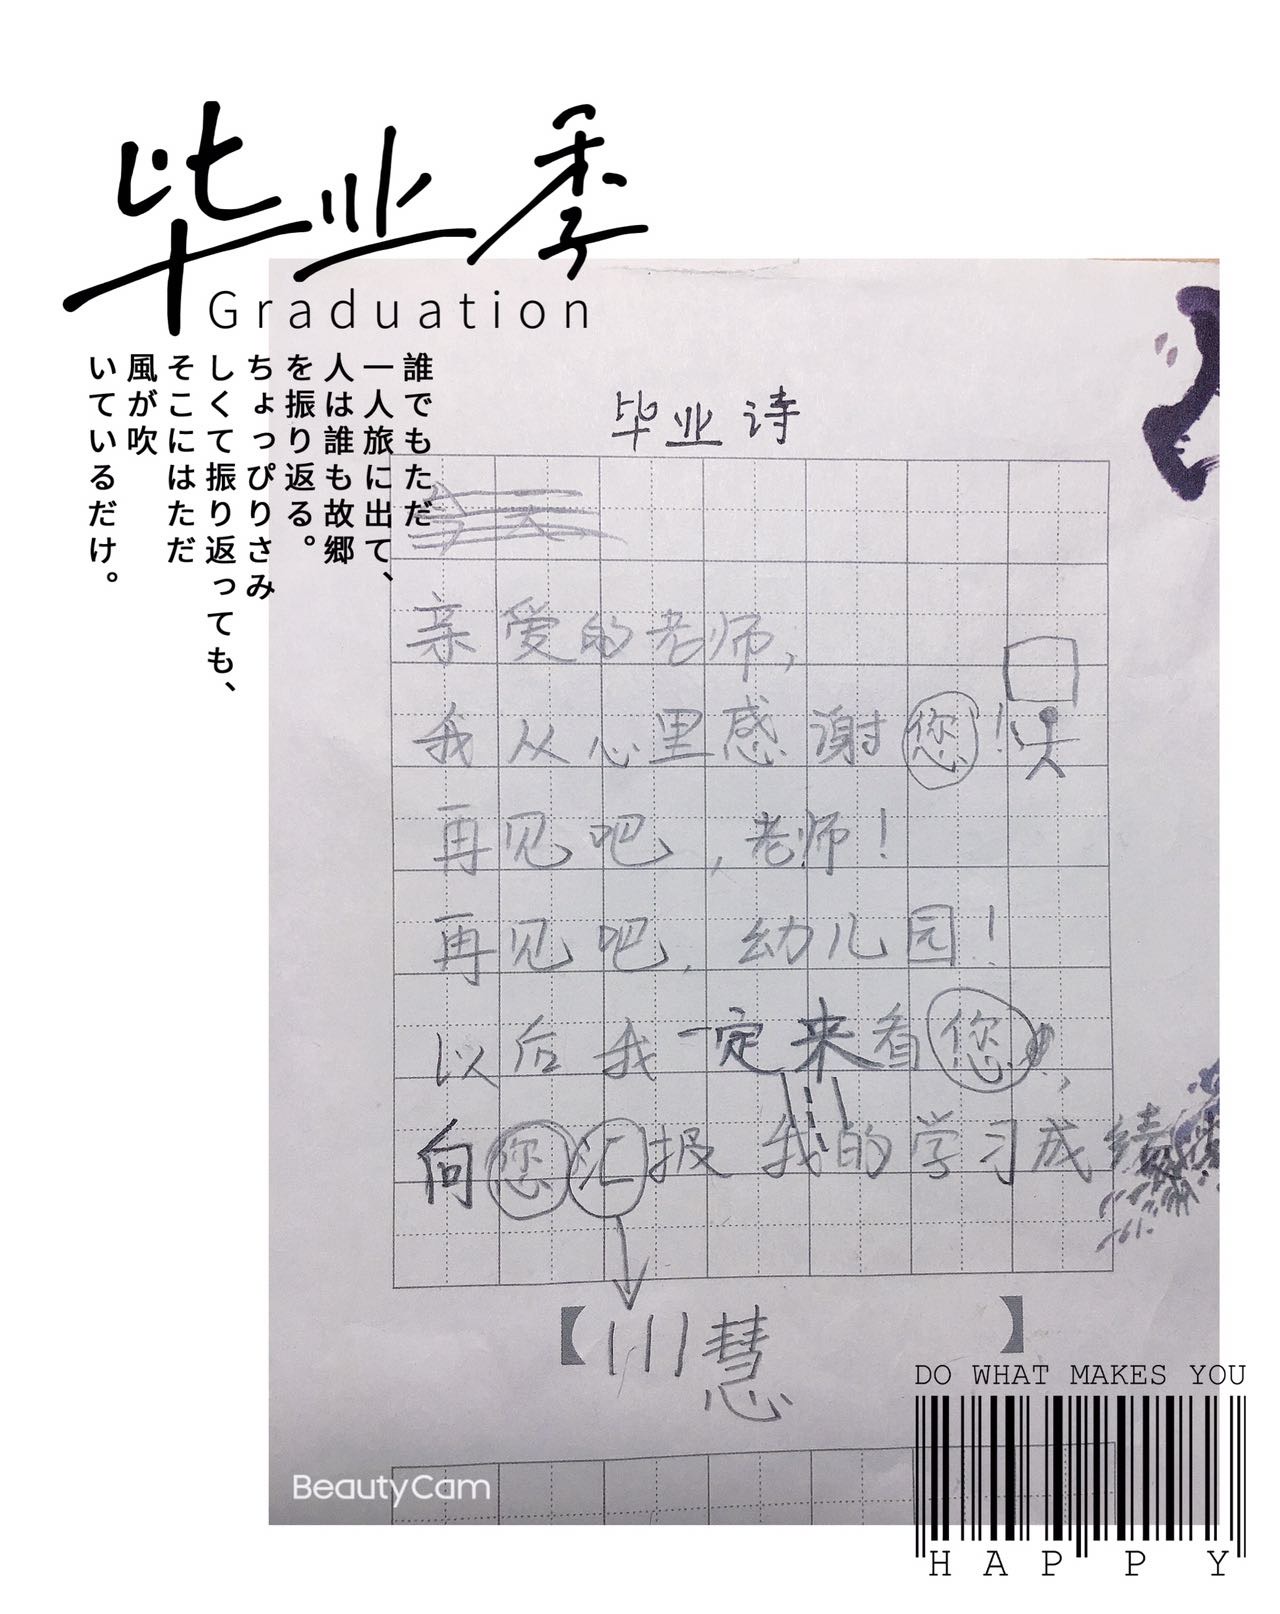 毕业季
Graduation
誰でもただ
一人旅に出て、
人は誰も故郷
を振り返る。
ちょっぴりさみ
しくて振り返っても、
そこにはただ
風が吹
いているだけ。
毕业诗
今天
亲爱的老师，
我从心里感谢您！
再见吧，老师！
再见吧，幼儿园！
以后我一定来看您，
向您汇报我的学习成绩
【川慧】
DO WHAT MAKES YOU
HAPPY
BeautyCam